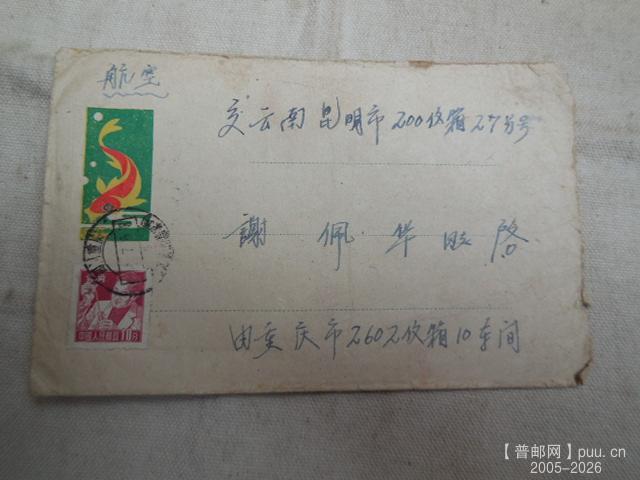 航空
交云南昆明市200信箱27分号
謝佩华 啓
中国人民邮政 10分
由重庆市260信箱10车间
【普邮网】puu.cn
2005-2026